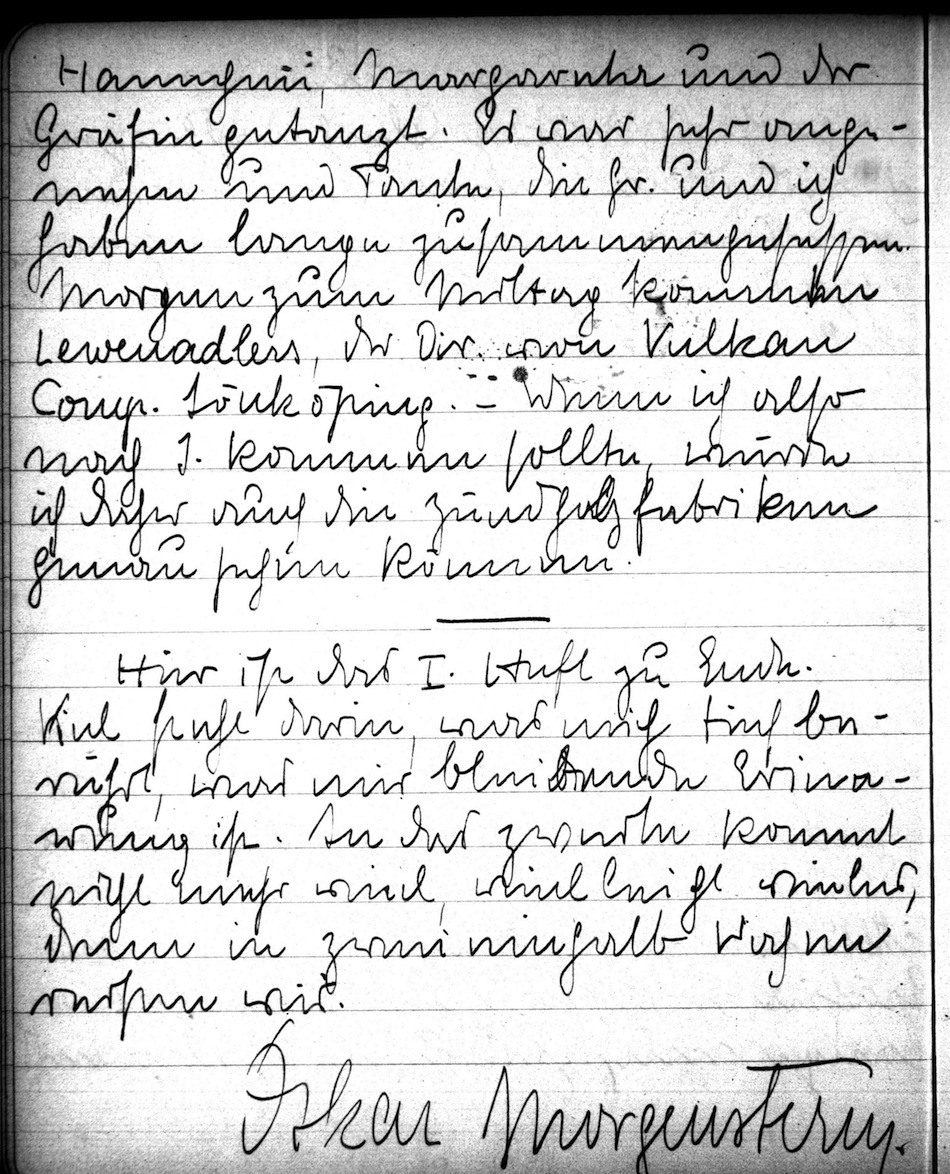 Hannghui, Margareta und der
Gräfin getanzt. Es war sehr ange-
nehm und Tante, die Gr. und ich
haben lange zusammengesessen.
Morgen zum Mittag kommen
Lewenadlers, der Dir. von Vulkan
Comp. Jönköping. – Wenn ich also
nach J. kommen sollte, würde
ich daher auch die Zündholzfabriken
genau sehen können.
Hier ist das I. Heft zu Ende.
Viel steht darin, was mich tief be-
rührt, was mir bleibende Erinne-
rung ist. In das zweite kommt
nicht mehr viel, vielleicht vieles,
denn in zwei einhalb Wochen
reisen wir.
Oskar Morgenstern.